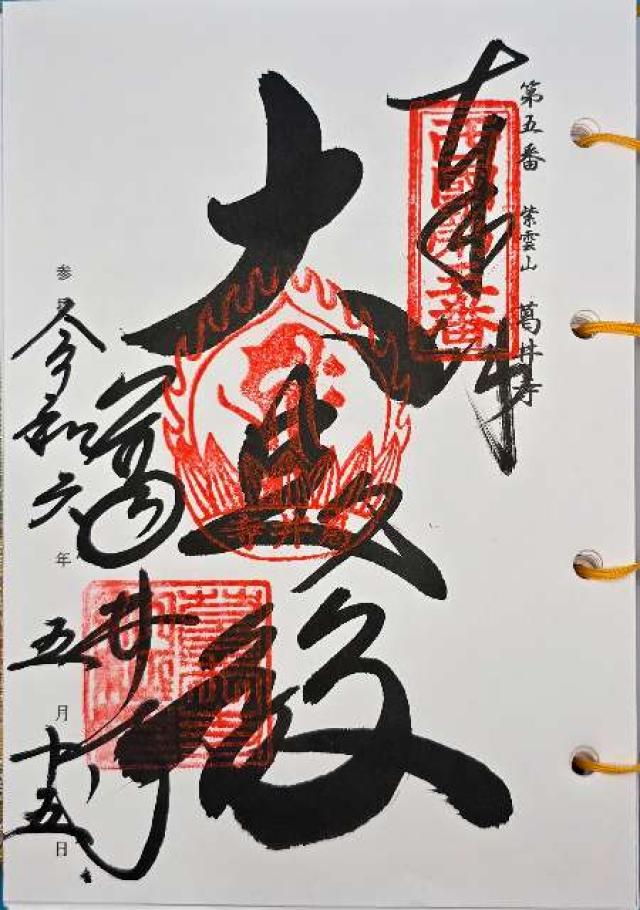 第五番 紫雲山 葛井寺
奉拝
西國第五番
大悲殿
葛井寺
葛井寺
参
令和六年五月十五日